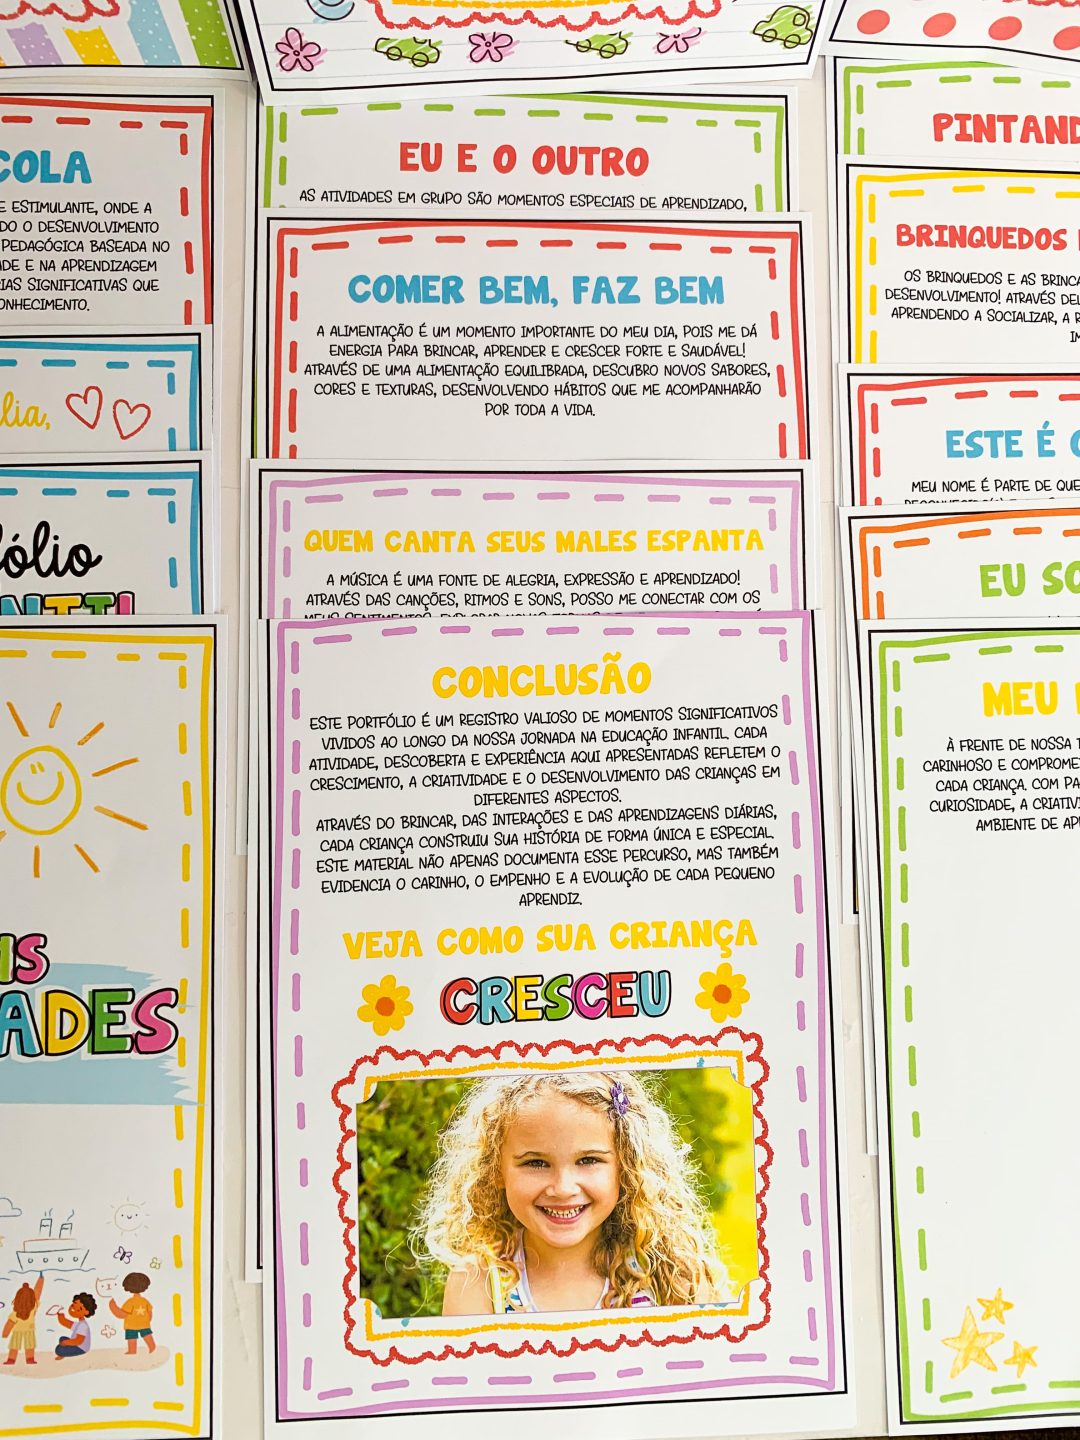 COLA
E ESTIMULANTE, ONDE A
DO O DESENVOLVIMENTO
PEDAGÓGICA BASEADA NO
ADE E NA APRENDIZAGEM
IAS SIGNIFICATIVAS QUE
ONHECIMENTO.
lia,
fólio
NTI
MS
ADES
EU E O OUTRO
AS ATIVIDADES EM GRUPO SÃO MOMENTOS ESPECIAIS DE APRENDIZADO,
COMER BEM, FAZ BEM
A ALIMENTAÇÃO É UM MOMENTO IMPORTANTE DO MEU DIA, POIS ME DÁ
ENERGIA PARA BRINCAR, APRENDER E CRESCER FORTE E SAUDÁVEL!
ATRAVÉS DE UMA ALIMENTAÇÃO EQUILIBRADA, DESCUBRO NOVOS SABORES,
CORES E TEXTURAS, DESENVOLVENDO HÁBITOS QUE ME ACOMPANHARÃO
POR TODA A VIDA.
QUEM CANTA SEUS MALES ESPANTA
A MÚSICA É UMA FONTE DE ALEGRIA, EXPRESSÃO E APRENDIZADO!
ATRAVÉS DAS CANÇÕES, RITMOS E SONS, POSSO ME CONECTAR COM OS
CONCLUSÃO
ESTE PORTFÓLIO É UM REGISTRO VALIOSO DE MOMENTOS SIGNIFICATIVOS
VIVIDOS AO LONGO DA NOSSA JORNADA NA EDUCAÇÃO INFANTIL. CADA
ATIVIDADE, DESCOBERTA E EXPERIÊNCIA AQUI APRESENTADAS REFLETEM O
CRESCIMENTO, A CRIATIVIDADE E O DESENVOLVIMENTO DAS CRIANÇAS EM
DIFERENTES ASPECTOS.
ATRAVÉS DO BRINCAR, DAS INTERAÇÕES E DAS APRENDIZAGENS DIÁRIAS,
CADA CRIANÇA CONSTRUIU SUA HISTÓRIA DE FORMA ÚNICA E ESPECIAL.
ESTE MATERIAL NÃO APENAS DOCUMENTA ESSE PERCURSO, MAS TAMBÉM
EVIDENCIA O CARINHO, O EMPENHO E A EVOLUÇÃO DE CADA PEQUENO
APRENDIZ.
VEJA COMO SUA CRIANÇA
CRESCEU
PINTAND
BRINQUEDOS
OS BRINQUEDOS E AS BRINCA
DESENVOLVIMENTO! ATRAVÉS DEL
APRENDENDO A SOCIALIZAR, A R
IM
ESTE É O
MEU NOME É PARTE DE QUE
EU SO
MEU
À FRENTE DE NOSSA T
CARINHOSO E COMPROME
CADA CRIANÇA. COM PA
CURIOSIDADE, A CRIATIVI
AMBIENTE DE AP